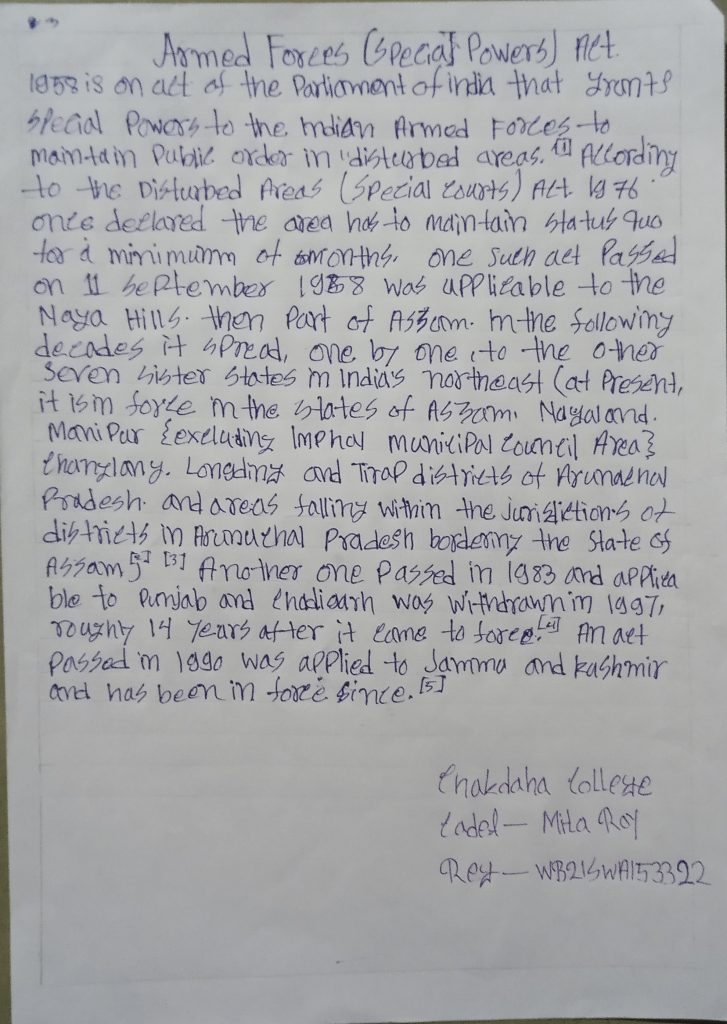 Armed Forces (Special Powers) Act.
1958 is an act of the Parliament of india that grants
special Powers to the Indian Armed Forces to
maintain Public order in "disturbed areas.[1] According
to the Disturbed Areas (special courts) Act 1976
once declared the area has to maintain status quo
for a minimum of 3 months. one such act Passed
on 11 September 1958 was applicable to the
Naga Hills. then Part of Assam. In the following
decades it spread, one by one, to the other
Seven sister states in India's northeast (at Present,
it is in force in the states of Assam. Nagaland.
ManiPur {excluding Imphal municiPal council Area}
Changlang. Longding and TiraP districts of Arunachal
Pradesh. and areas falling within the jurisdictions of
districts in Arunachal Pradesh bordering the State of
Assam).[2] [3] Another one Passed in 1983 and applica
ble to Punjab and Chadigarh was withdrawn in 1997,
roughly 14 years after it came to force.[4] An act
Passed in 1990 was applied to Jammu and kashmir
and has been in force since.[5]
Chakdaha College
Cadet — Mita Roy
Reg — WB21SWA153322